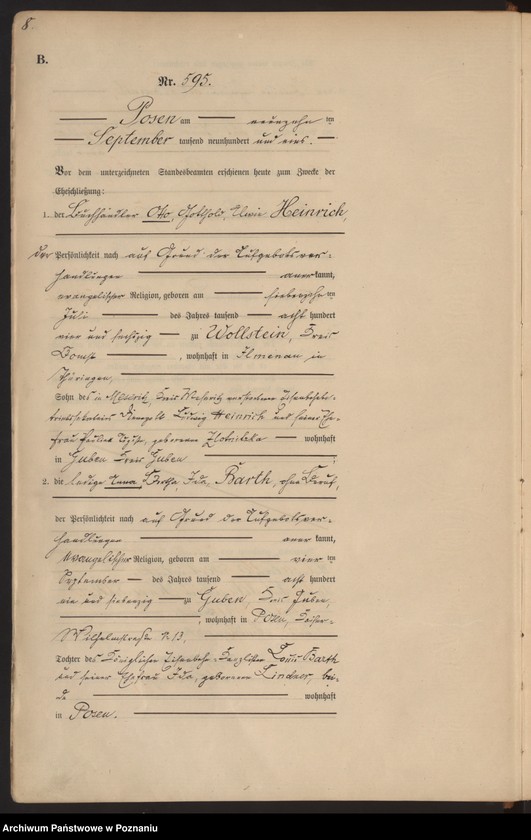 8.
B.
Nr. 595.
Posen am neunzehn ten
September tausend neunhundert und eins.
Vor dem unterzeichneten Standesbeamten erschienen heute zum Zwecke der
Eheschließung:
1. der Buchhändler Otto, Gotthold, Heinrich,
der Persönlichkeit nach auf Grund der Aufgebotsver-
handlungen anerkannt,
evangelischer Religion, geboren am siebenzehn ten
Juli des Jahres tausend acht hundert
vier und sechzig zu Wollstein, Kreis
Bomst, wohnhaft in Ilmenau in
Thüringen,
Sohn des in Meseritz, Kreis Meseritz verstorbenen
Ludwig Heinrich und seiner Ehe-
frau geborenen wohnhaft
in Guben Kreis Guben
2. die ledige Anna, Bertha, Ida, Barth, ohne Beruf,
der Persönlichkeit nach auf Grund der Aufgebotsver-
handlungen anerkannt,
evangelischer Religion, geboren am vier ten
September des Jahres tausend acht hundert
ein und siebenzig zu Guben, Kreis Guben,
wohnhaft in Posen, Kaiser-
Wilhelmstraße
Tochter des Königlichen Eisenbahn-Kanzlisten Louis Barth
und seiner Ehefrau Ida, geborenen Lindner, bei-
de wohnhaft
in Posen.
Archiwum Państwowe w Poznaniu